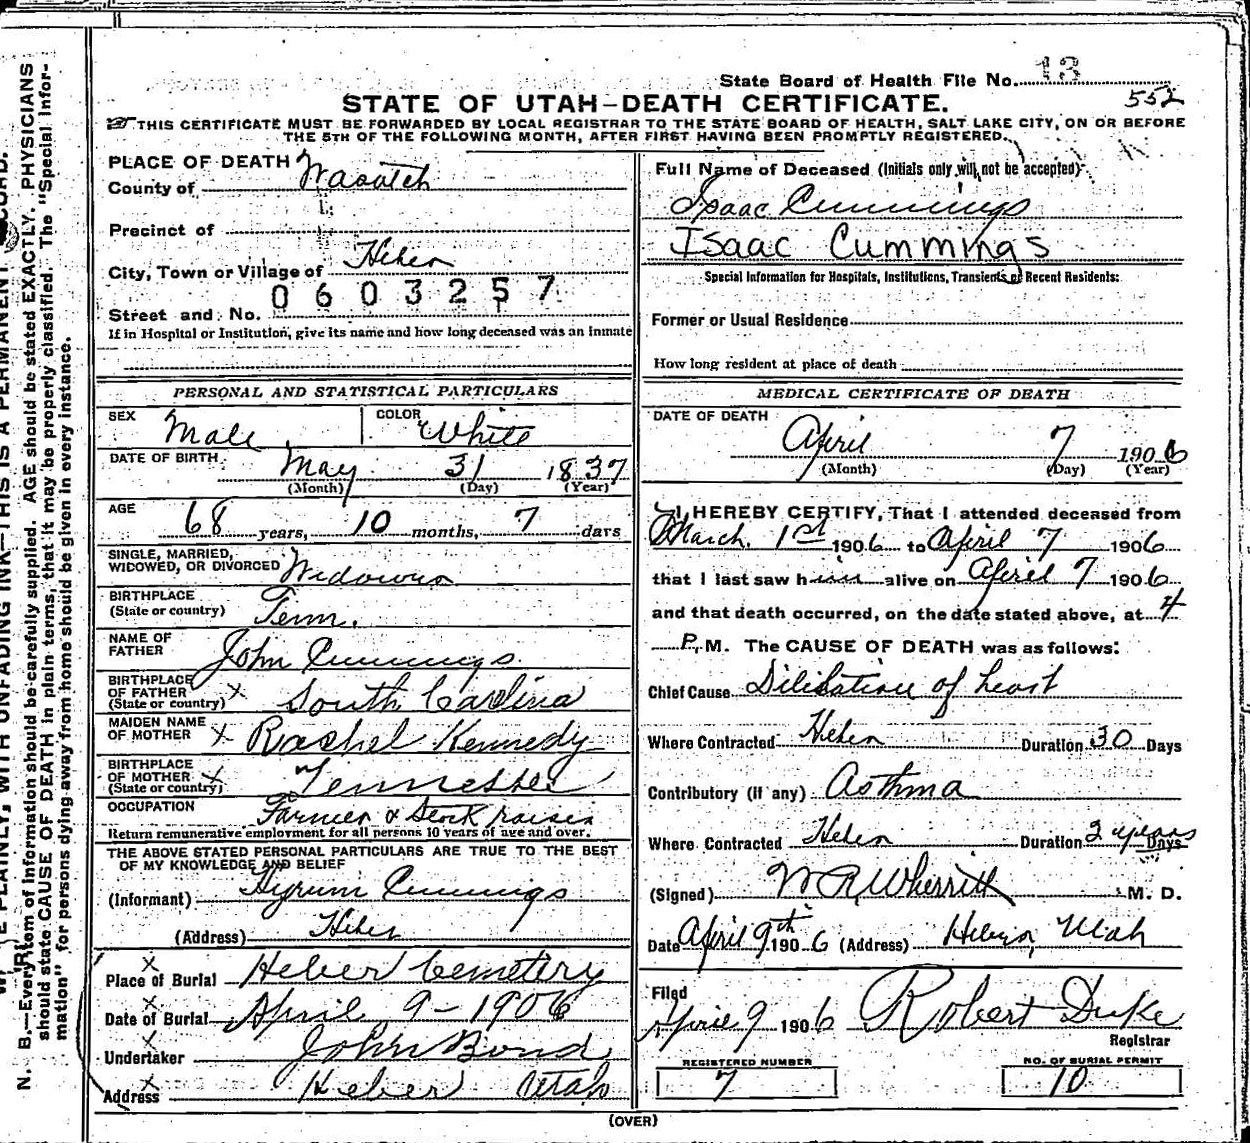 State Board of Health File No. 13
552
STATE OF UTAH–DEATH CERTIFICATE.
☞ THIS CERTIFICATE MUST BE FORWARDED BY LOCAL REGISTRAR TO THE STATE BOARD OF HEALTH, SALT LAKE CITY, ON OR BEFORE
THE 5TH OF THE FOLLOWING MONTH, AFTER FIRST HAVING BEEN PROMPTLY REGISTERED.
PLACE OF DEATH
County of Wasatch
Precinct of
City, Town or Village of Heber
0603257
Street and No.
If in Hospital or Institution, give its name and how long deceased was an inmate
PERSONAL AND STATISTICAL PARTICULARS
SEX Male COLOR White
DATE OF BIRTH May 31 1837
(Month) (Day) (Year)
AGE 68 years, 10 months, 7 days
SINGLE, MARRIED,
WIDOWED, OR DIVORCED Widower
BIRTHPLACE
(State or country) Tenn.
NAME OF
FATHER John Cummings
BIRTHPLACE
OF FATHER X South Carolina
(State or country)
MAIDEN NAME
OF MOTHER X Rachel Kennedy
BIRTHPLACE
OF MOTHER X Tennessee
(State or country)
OCCUPATION Farmer & Stock raiser
Return remunerative employment for all persons 10 years of age and over.
THE ABOVE STATED PERSONAL PARTICULARS ARE TRUE TO THE BEST
OF MY KNOWLEDGE AND BELIEF
(Informant) Hyrum Cummings
(Address) Heber
X
Place of Burial Heber Cemetery
X
Date of Burial April 9 - 1906
X
Undertaker John Bond
X
Address Heber Utah
Full Name of Deceased (Initials only will not be accepted)
Isaac Cummings
Isaac Cummings
Special Information for Hospitals, Institutions, Transients or Recent Residents:
Former or Usual Residence
How long resident at place of death
MEDICAL CERTIFICATE OF DEATH
DATE OF DEATH
April 7 1906
(Month) (Day) (Year)
I, HEREBY CERTIFY, That I attended deceased from
March 1st 1906 to April 7 1906
that I last saw him alive on April 7 1906
and that death occurred, on the date stated above, at 4
P. M. The CAUSE OF DEATH was as follows:
Chief Cause Dilitation of heart
Where Contracted Heber Duration 30 Days
Contributory (if any) Asthma
Where Contracted Heber Duration 2 years Days
(Signed) W R Wherritt M. D.
Date April 9th 1906 (Address) Heber, Utah
Filed
April 9 1906 Robert Duke
Registrar
REGISTERED NUMBER
7
NO. OF BURIAL PERMIT
10
(OVER)
N. B.—Every item of information should be carefully supplied. AGE should be stated EXACTLY. PHYSICIANS
should state CAUSE OF DEATH in plain terms, that it may be properly classified. The "Special Infor-
mation" for persons dying away from home should be given in every instance.
PLAINLY, WITH UNFADING INK—THIS IS A PERMANENT